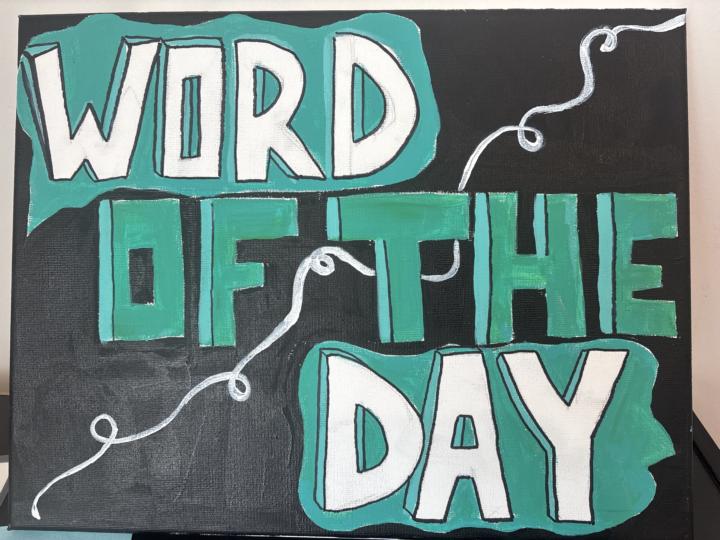 WORD
OF THE
DAY